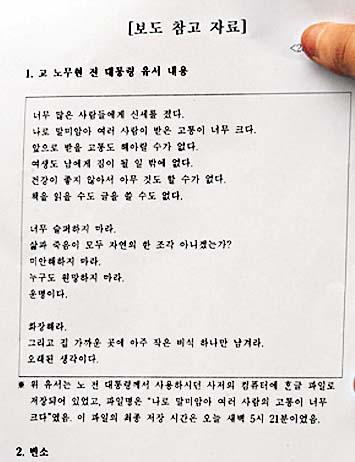 [보도 참고 자료]
1. 고 노무현 전 대통령 유서 내용
너무 많은 사람들에게 신세를 졌다.
나로 말미암아 여러 사람이 받은 고통이 너무 크다.
앞으로 받을 고통도 헤아릴 수가 없다.
여생도 남에게 짐이 될 일 밖에 없다.
건강이 좋지 않아서 아무 것도 할 수가 없다.
책을 읽을 수도 글을 쓸 수도 없다.
너무 슬퍼하지 마라.
삶과 죽음이 모두 자연의 한 조각 아니겠는가?
미안해하지 마라.
누구도 원망하지 마라.
운명이다.
화장해라.
그리고 집 가까운 곳에 아주 작은 비석 하나만 남겨라.
오래된 생각이다.
※ 위 유서는 노 전 대통령께서 사용하시던 사저의 컴퓨터에 한글 파일로
저장되어 있었고, 파일명은 "나로 말미암아 여러 사람의 고통이 너무
크다"였음. 이 파일의 최종 저장 시간은 오늘 새벽 5시 21분이였음.
2. 벤소